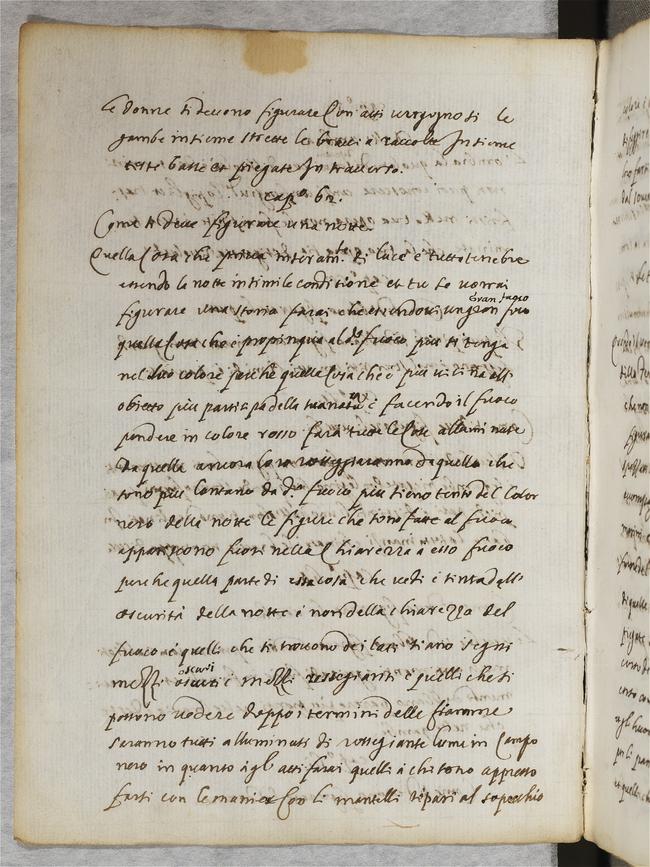 Le donne si deuono figurare Con atti uergognosi le
gambe insieme strette le braccia raccolte Insieme
teste basse et piegate In trauerso.
cap.º 62.
Come si deue figurare una notte.
Quella Cosa che priua interam.te di luce e tutto tenebre
essendo la notte in simile conditione et tu se uorrai
figurare una storia farai che essendoui un gran fuoco
gran fuoco
quella Cosa che è propinqua al d.º fuoco più si tenga
nel suo colore perche quella Cosa che è più uicina all
obietto più partecipa della sua natura è facendo il fuoco
pendere in colore rosso farà tutte le Cose alluminate
da quella ancora loro rosseggiaranno da quello che
sono più lontano da d.º fuoco più sieno tento del color
nero della notte le figure che sono fatte al fuoco
appariscono fuori nella Chiarezza a esso fuoco
perche quella parte di essa cosa che uedi è tinta dall
oscurità della notte e non della chiarezza del
fuoco è quelli che si trouono dei lati siano segni
oscuri
mezzi oscuri è mezzi rossegianti è quelli che si
possono uedere doppo i termini delle fiamme
saranno tutti alluminati di rossegiante lume in Campo
nero in quanto a gl atti farai quelli a che sono appresso
farsi con le mani et Con li mantelli ripari al sopechio